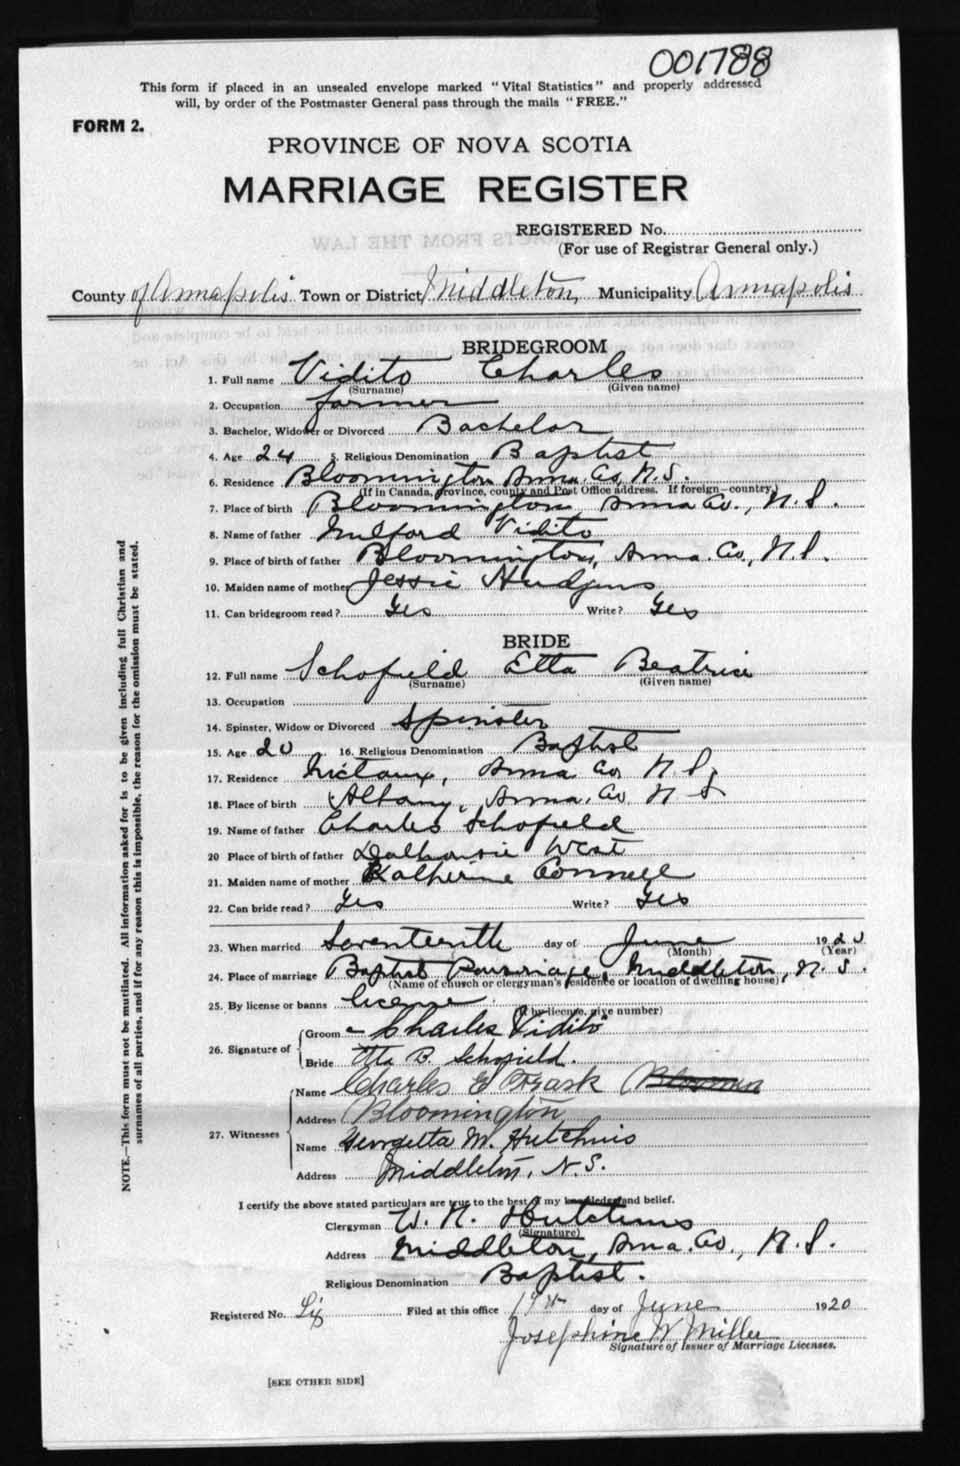 001788
This form if placed in an unsealed envelope marked "Vital Statistics" and properly addressed
will, by order of the Postmaster General pass through the mails "FREE."
FORM 2.
PROVINCE OF NOVA SCOTIA
MARRIAGE REGISTER
REGISTERED No.
(For use of Registrar General only.)
County of Annapolis Town or District Middleton, Municipality Annapolis
BRIDEGROOM
1. Full name Vidito Charles
(Surname) (Given name)
2. Occupation farmer
3. Bachelor, Widower or Divorced Bachelor
4. Age 24 5. Religious Denomination Baptist
6. Residence Bloomington Anna. Co, N.S.
(If in Canada, province, county and Post Office address. If foreign—country.)
7. Place of birth Bloomington Anna Co., N.S.
8. Name of father Milford Vidito
9. Place of birth of father Bloomington, Anna. Co., N.S.
10. Maiden name of mother Jessie Hudgins
11. Can bridegroom read? Yes Write? Yes
BRIDE
12. Full name Schofield Etta Beatrice
(Surname) (Given name)
13. Occupation
14. Spinster, Widow or Divorced Spinster
15. Age 20 16. Religious Denomination Baptist
17. Residence Nictaux, Anna Co N.S.
18. Place of birth Albany, Anna. Co N S
19. Name of father Charles Schofield
20 Place of birth of father Dalhousie West
21. Maiden name of mother Katherine Connell
22. Can bride read? Yes Write? Yes
23. When married Seventeenth day of June 1920
(Month) (Year)
24. Place of marriage Baptist Parsonage, Middleton, N.S.
(Name of church or clergyman's residence or location of dwelling house)
25. By license or banns license
(If by license, give number)
26. Signature of Groom Charles Vidito
Bride Etta B. Schofield.
27. Witnesses Name Charles E Trask
Address Bloomington
Name Georgetta M. Hutchins
Address Middleton, N.S.
I certify the above stated particulars are true to the best of my knowledge and belief.
Clergyman W. N. Hutchins
(Signature)
Address Middleton, Anna. Co., N.S.
Religious Denomination Baptist.
Registered No. Filed at this office day of June 1920
Josephine W Miller
Signature of Issuer of Marriage Licenses.
[SEE OTHER SIDE]
NOTE.—This form must not be mutilated. All information asked for is to be given including full Christian and
surnames of all parties, and if for any reason this is impossible, the reason for the omission must be stated.